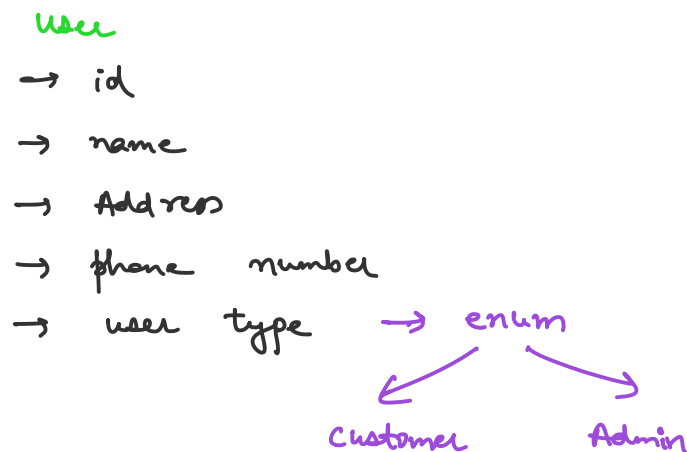 user
→ id
→ name
→ Address
→ phone number
→ user type → enum
Customer Admin